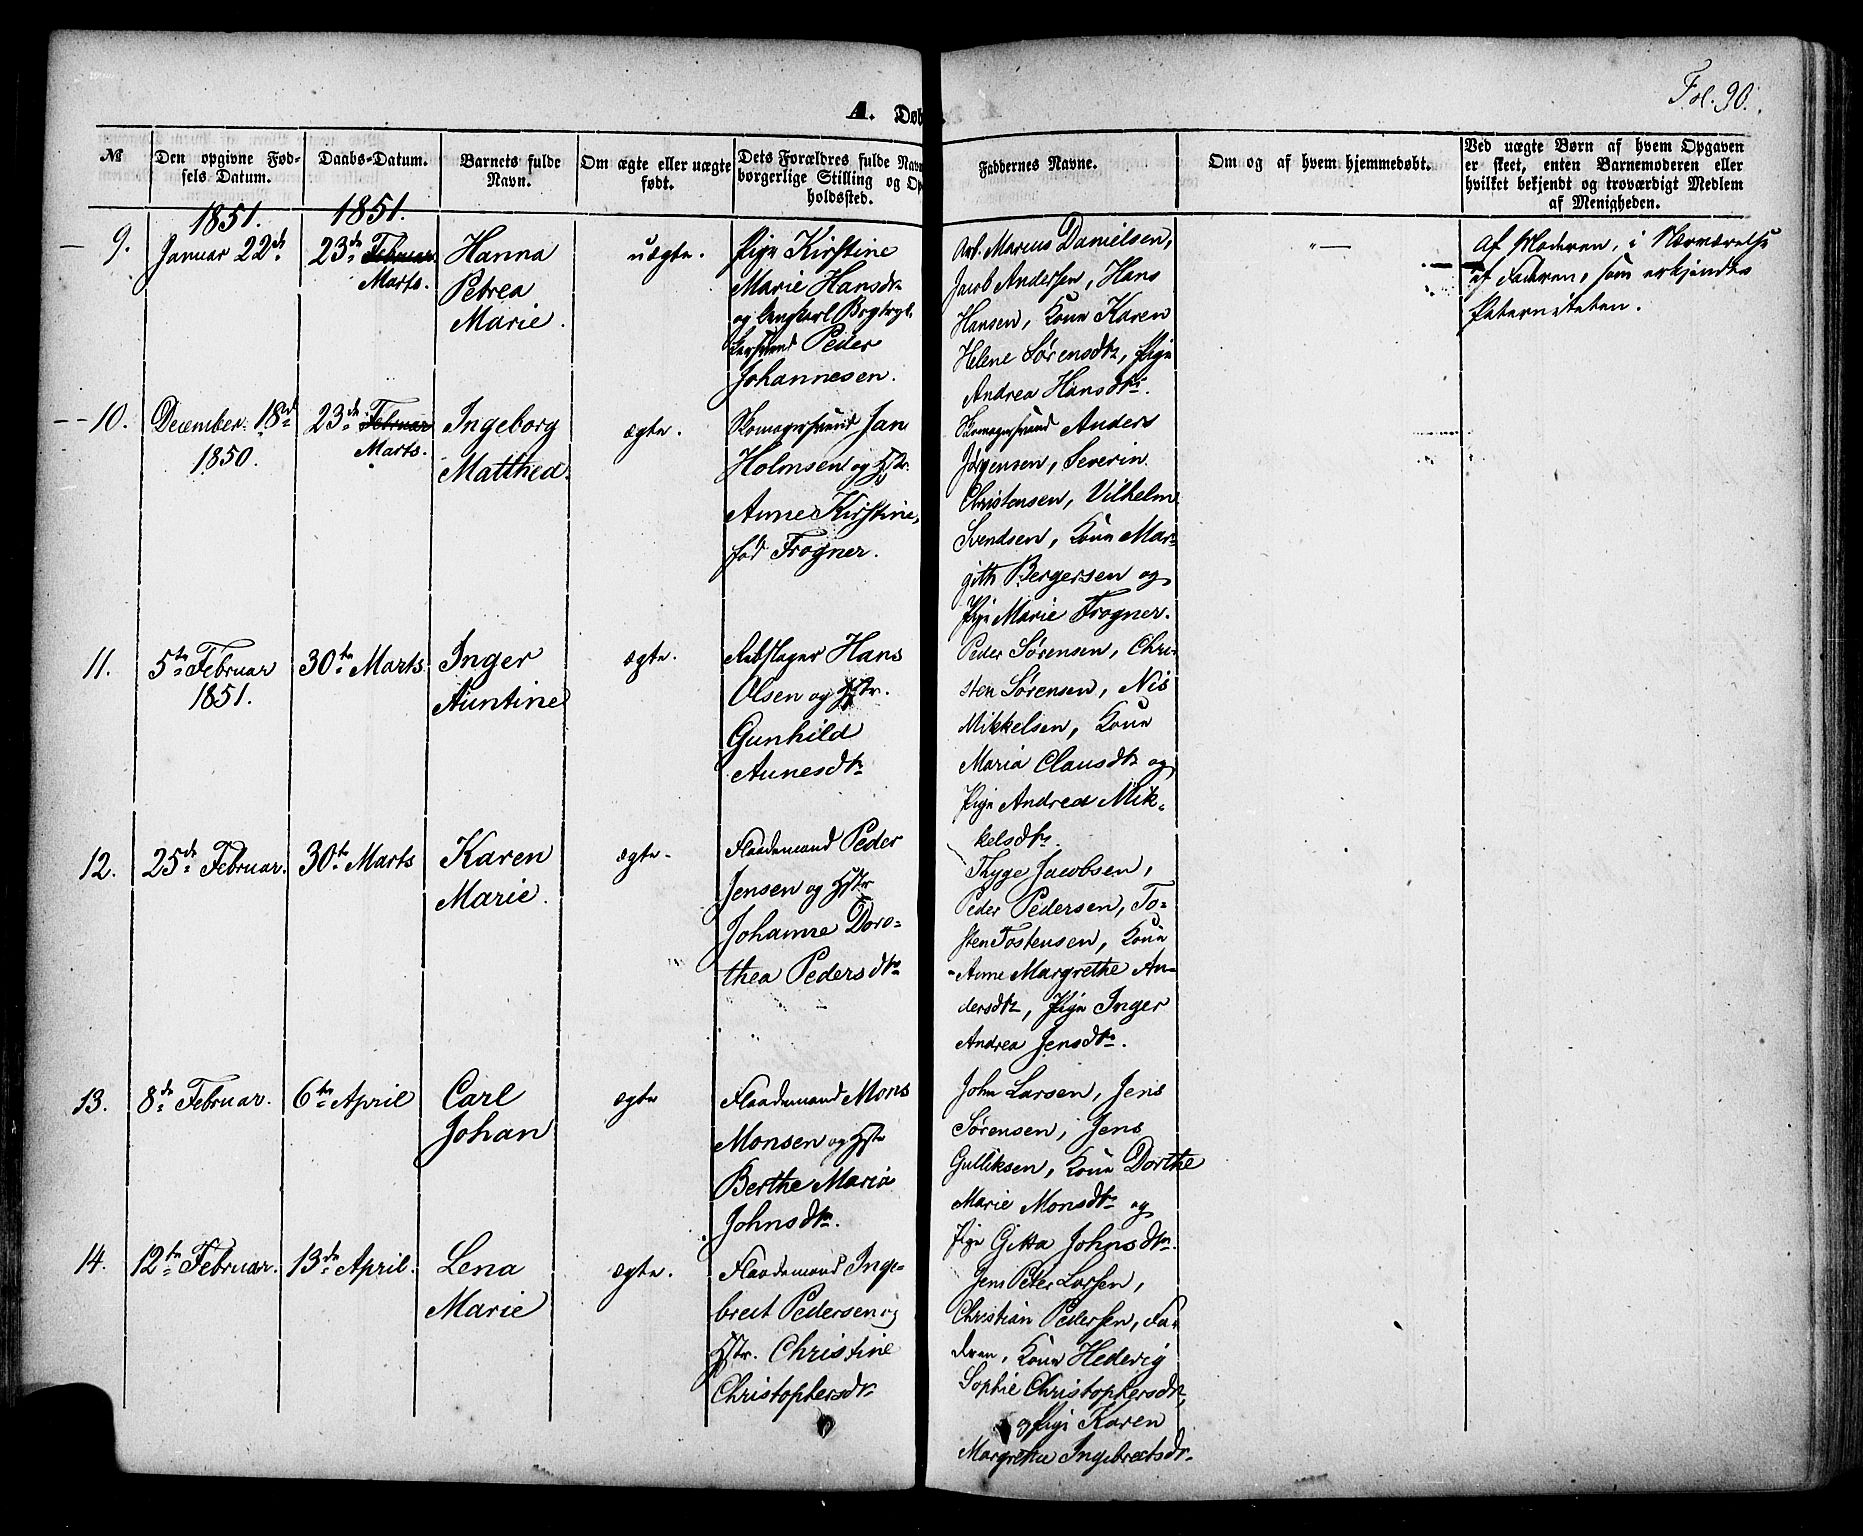 Fol. 90.
A. Døb
№
Den opgivne Fød-
sels Datum.
Daabs-Datum.
Barnets fulde
Navn.
Om ægte eller uægte
født.
Dets Forældres fulde Navn
borgerlige Stilling og Op
holdssted.
Faddernes Navne.
Om og af hvem hjemmedøbt.
Ved uægte Børn af hvem Opgaven
er skeet, enten Barnemoderen eller
hvilket bekjendt og troværdigt Medlem
af Menigheden.
1851.
1851.
9.
Januar 22de
23de Februar
Marts.
Hanna
Petrea
Marie.
uægte.
Pige Kirstine
Marie Hansdtr
og Ungkarl
Peder
Johannesen.
Arb. Marcus Danielsen,
Jacob Andersen, Hans
Hansen, Kone Karen
Helene Sørensdtr, Pige
Andrea Hansdtr.
"—
Af Moderen, i Nærværelse
af Faderen, som erkjendte
Paterniteten.
10.
December 18de
1850.
23de Februar
Marts.
Ingeborg
Matthea.
ægte.
Skomagersvend Jan
Holmsen og Hstr.
Anne Kirstine,
fød Frogner.
Skomagersvend Anders
Jørgensen, Severin
Christensen, Vilhelm
Svendsen, Kone Mar-
gith Bergersen og
Pige Marie Frogner.
11.
5te Februar
1851.
30te Marts.
Inger
Auntine
ægte.
Rebslager Hans
Olsen og Hstr.
Gunhild
Aunesdtr
Peder Sørensen, Chri-
sten Sørensen, Nis
Mikkelsen, Kone
Maria Clausdtr og
Pige Andrea Mik-
kelsdtr.
12.
25de Februar.
30te Marts
Karen
Marie.
ægte.
Flaademand Peder
Jensen og Hstr
Johanne Doro-
thea Pedersdtr
Thyge Jacobsen,
Peder Pedersen, To-
sten Tostensen, Kone
Anne Margrethe An-
dersdtr, Pige Inger
Andrea Jensdtr.
13.
8de Februar.
6te April
Carl
Johan
ægte
Flaademand Mons
Monsen og Hstr
Berthe Maria
Johnsdtr.
John Larsen, Jens
Sørensen, Jens
Gulliksen, Kone Dorthe
Marie Monsdtr og
Pige Gitta Johnsdtr.
14.
12te Februar.
13de April.
Lena
Marie
ægte.
Flaademand Inge-
bret Pedersen og
Hstr. Christine
Christophersdtr
Jens Peter Larsen,
Christian Pedersen, Fa-
deren, Kone Hedevig
Sophie Christophersdtr,
og Pige Karen
Margrethe Ingebretsdtr.